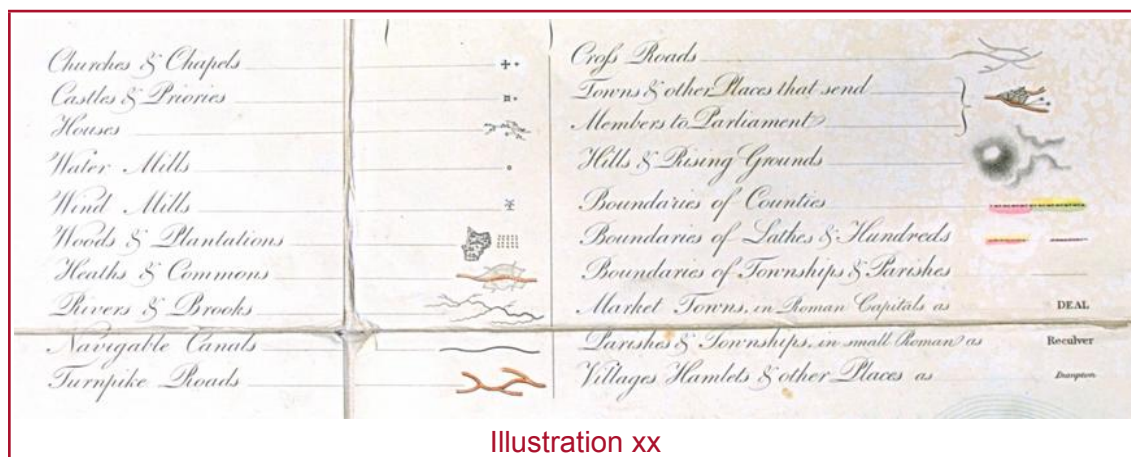 Churches & Chapels
Castles & Priories
Houses
Water Mills
Wind Mills
Woods & Plantations
Heaths & Commons
Rivers & Brooks
Navigable Canals
Turnpike Roads
Croſs Roads
Towns & other Places that send
Members to Parliament
Hills & Rising Grounds
Boundaries of Counties
Boundaries of Lathes & Hundreds
Boundaries of Townships & Parishes
Market Towns, in Roman Capitals as DEAL
Parishes & Townships, in small Roman as Reculver
Villages Hamlets & other Places as
Illustration xx